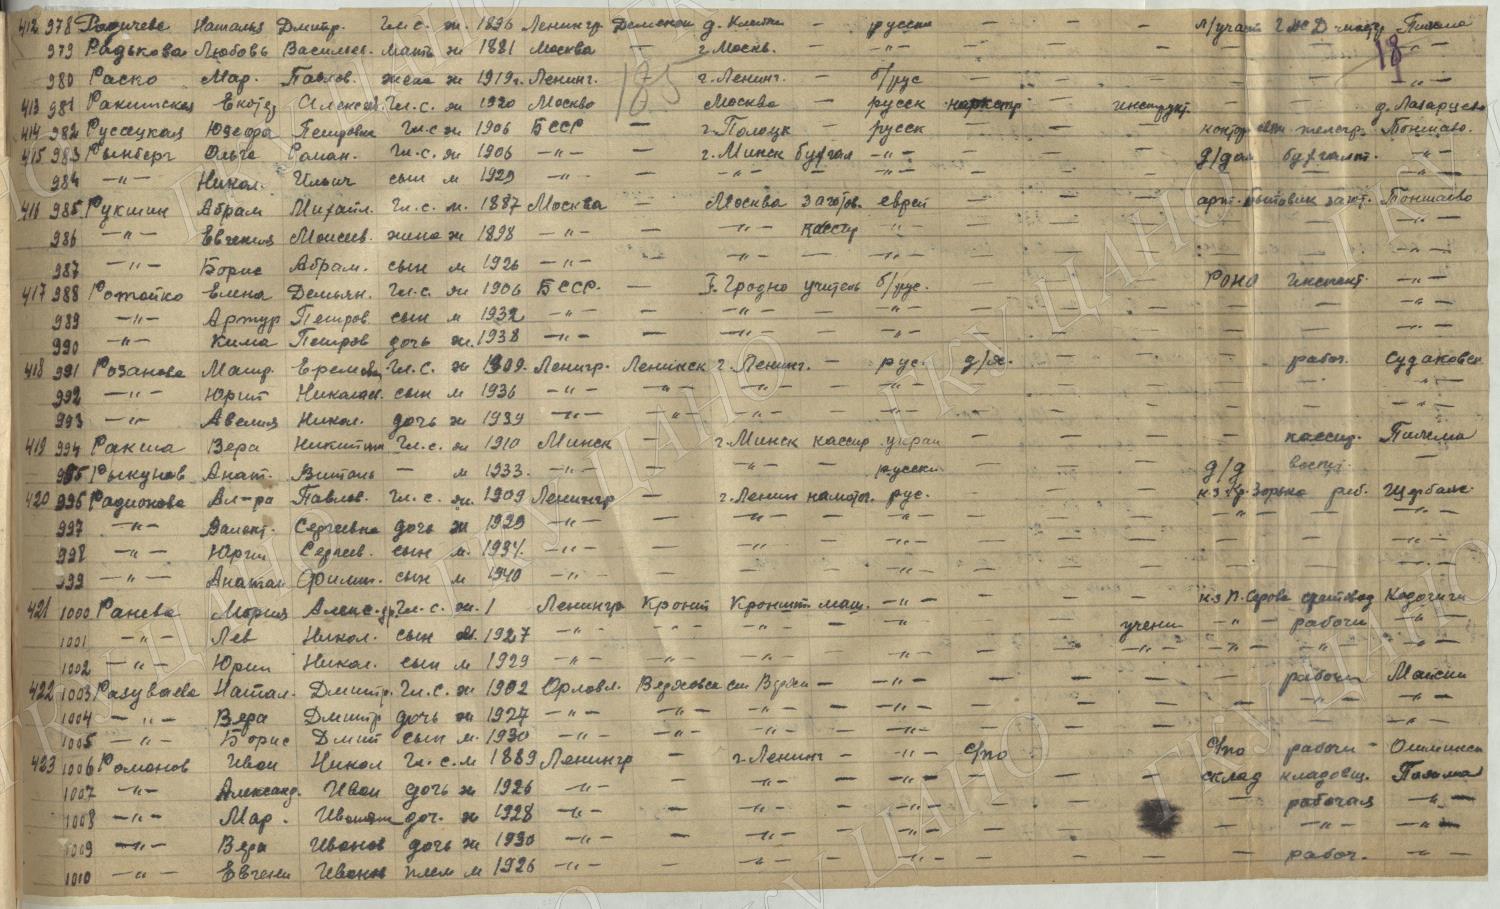 412 978 Радичева Наталья Дмитр. Гл. с. ж. 1896 Ленингр Демянски д. — русски — — — — л/участ Г ЖД Пижма
979 Радькова Любовь Васильев. мать ж 1881 Москва г. Москв. — -"- — — — — — 18
980 Раско Мар. Павлов. жена ж 1919 г. Ленинг. 185 г. Ленинг. — б/рус — — — — — — -"-
413 981 Ракитская Екатер Алексеев. Гл. с. ж 1920 Москва Москва — русск — — инструкт. — — д. Лазарцево
414 982 Руссецкая Юзефа Петровна Гл. с ж 1906 БССР — г. Полоцк — русск — — — — телегр. Тоншаево.
415 983 Рынберг Ольга Роман. Гл. с. ж 1906 -"- — г. Минск бухгал -"- — — — — д/дом бухгалт. -"-
984 -"- Никол. Ильич сын м 1929 -"- — -"- -"- — — — — — — -"-
416 985 Рукшин Абрам Михайл. Гл. с. м. 1887 Москва — Москва загот. еврей — — — — арт. бытовик загот. Тоншаево
986 -"- Евгения Моисеев. жена ж 1898 -"- — -"- кассир -"- — — — — — — -"-
987 -"- Борис Абрам. сын м 1926 -"- — — — — — — -"-
417 988 Рожойко Елена Демьян. Гл. с. ж 1906 БССР. — Г. Гродно учитель б/рус. — — — — РОНО инспект. -"-
989 -"- Артур Петров сын м 1932 -"- — -"- — -"- — — — — — — -"-
990 -"- Кима Петров дочь ж. 1938 -"- — -"- — -"- — — — — — — -"-
418 991 Розанова Мавр. Еремеев. Гл. с. ж 1909. Ленингр. Ленинск г. Ленинг. — рус. д/х. — — — — рабоч. Судаковск
992 -"- Юрий Николаев. сын м 1936 -"- -"- -"- — -"- — — — — — — -"-
993 -"- Авелия Никол. дочь ж 1939 -"- -"- -"- — -"- — — — — — — -"-
419 994 Ракша Вера Никитин Гл. с. ж 1910 Минск — г. Минск кассир украин — — — — — кассир. Пижма
995 Рыкунов Анат. Виталь — м 1933. — — -"- — русски — — — — д/д воспит. —
420 996 Радионова Ал-ра Павлов. Гл. с. ж. 1909 Ленингр — г. Ленин намотч. рус. — — — — к-з Кр. Зорька раб. Щербаж.
997 -"- Валент. Сергеевна дочь ж 1929 -"- — -"- — -"- — — — — -"- — -"-
998 -"- Юрий Сергеев. сын м. 1934. -"- — -"- — -"- — — — — — — -"-
999 -"- Анатол Филип. сын м 1940 -"- — -"- — -"- — — — — — — -"-
421 1000 Ранева Мария Алекс-др. Гл. с. ж. 1 Ленингр Кронт Кроншт маш. -"- — — — — к-з п. Серова счетовод Кодочиги
1001 -"- Лев Никол. сын м. 1927 -"- -"- -"- — -"- — — — учени -"- рабочи -"-
1002 -"- Юрий Никол. сын м 1929 -"- -"- -"- — -"- — — — -"- -"- -"- -"-
422 1003 Разуваева Натал. Дмитр. Гл. с. ж 1902 Орловл. Верховск — -"- — — — — — рабоч. Майски
1004 -"- Вера Дмитр дочь ж 1927 -"- -"- -"- — -"- — — — — — -"- -"-
1005 -"- Борис Дмит сын м. 1930 -"- -"- -"- — -"- — — — — — — -"-
423 1006 Романов Иван Никол Гл. с. м 1889 Ленингр — г. Ленинг — -"- с/по — — — с/по рабочи - Ошминск
1007 -"- Александ. Иван дочь ж 1926 -"- -"- — -"- — — — — склад кладовщ. Пижма
1008 -"- Мар. Иванов доч. ж 1928 -"- — -"- — -"- — — — — рабочая -"-
1009 -"- Вера Иванов дочь ж 1930 -"- — -"- — -"- — — — — — -"- -"-
1010 -"- Евгени Иванов плем м 1926 -"- — -"- — -"- — — — — — рабоч. -"-
ГКУ ЦАНО